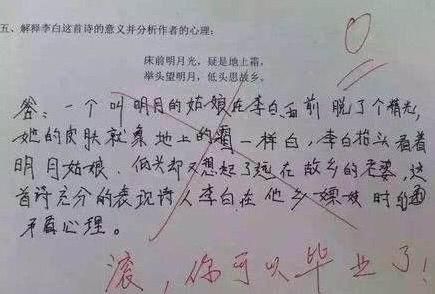 五、解释李白这首诗的意义并分析作者的心理:
床前明月光，疑是地上霜，
举头望明月，低头思故乡。
0
答：一个叫明月的姑娘在李白面前脱了个精光，
她的皮肤就象地上的霜一样白，李白抬头看着
明月姑娘，低头却又想起了远在故乡的老婆，这
首诗充分的表现诗人李白在他乡嫖妓时的
矛盾心理。
滚，你可以毕业了！